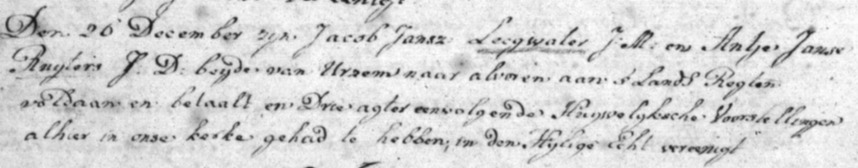 Den 26 December zyn Jacob Jansz Leegwater J: M: en Antje Janse
Ruyters J: D: beyde van Urzem naar alvoren aan 's Lands Regten
voldaan en betaalt en Drie agter eenvolgende Huywelyksche Voorstellingen
alhier in onse kerke gehad te hebben, in den Hylige Echt vereenigt